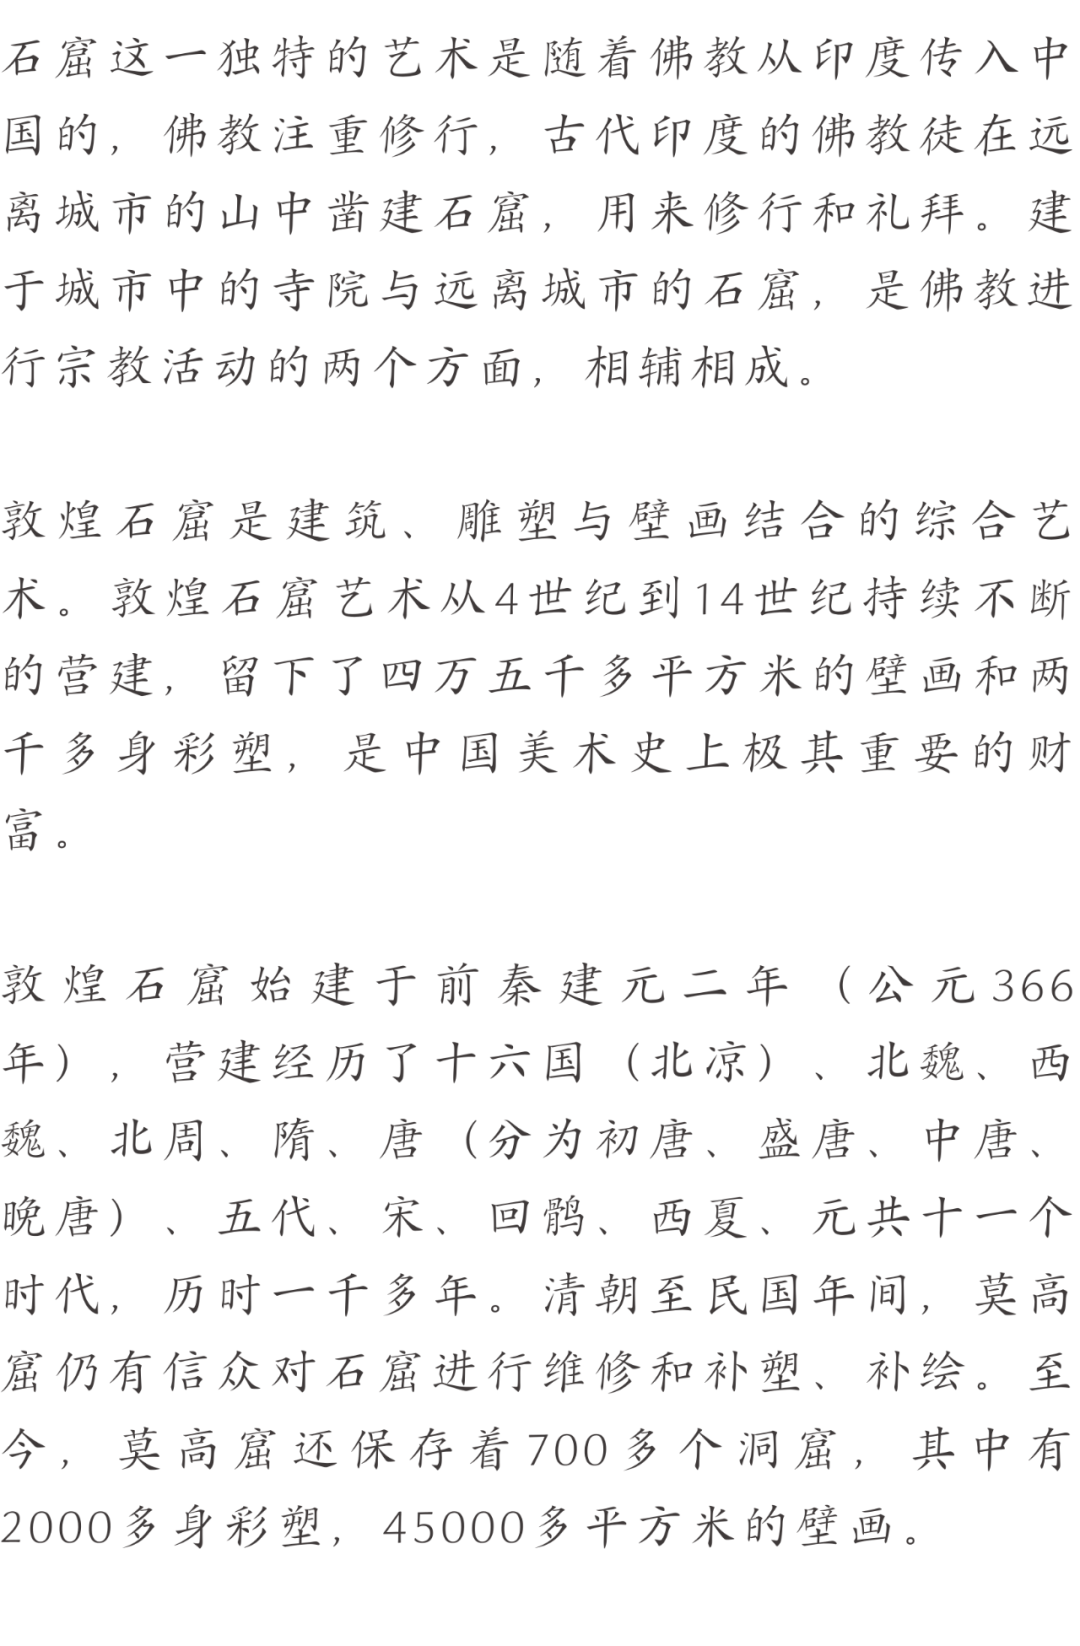 石窟这一独特的艺术是随着佛教从印度传入中
国的，佛教注重修行，古代印度的佛教徒在远
离城市的山中凿建石窟，用来修行和礼拜。建
于城市中的寺院与远离城市的石窟，是佛教进
行宗教活动的两个方面，相辅相成。
敦煌石窟是建筑、雕塑与壁画结合的综合艺
术。敦煌石窟艺术从4世纪到14世纪持续不断
的营建，留下了四万五千多平方米的壁画和两
千多身彩塑，是中国美术史上极其重要的财
富。
敦煌石窟始建于前秦建元二年（公元366
年），营建经历了十六国（北凉）、北魏、西
魏、北周、隋、唐（分为初唐、盛唐、中唐、
晚唐）、五代、宋、回鹘、西夏、元共十一个
时代，历时一千多年。清朝至民国年间，莫高
窟仍有信众对石窟进行维修和补塑、补绘。至
今，莫高窟还保存着700多个洞窟，其中有
2000多身彩塑，45000多平方米的壁画。